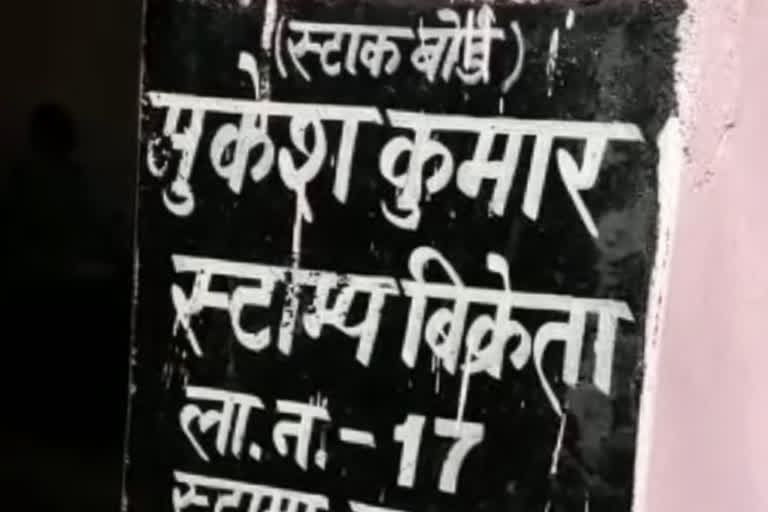 (स्टाक बोर्ड)
मुकेश कुमार
स्टाम्प बिक्रेता
ला.न.-17